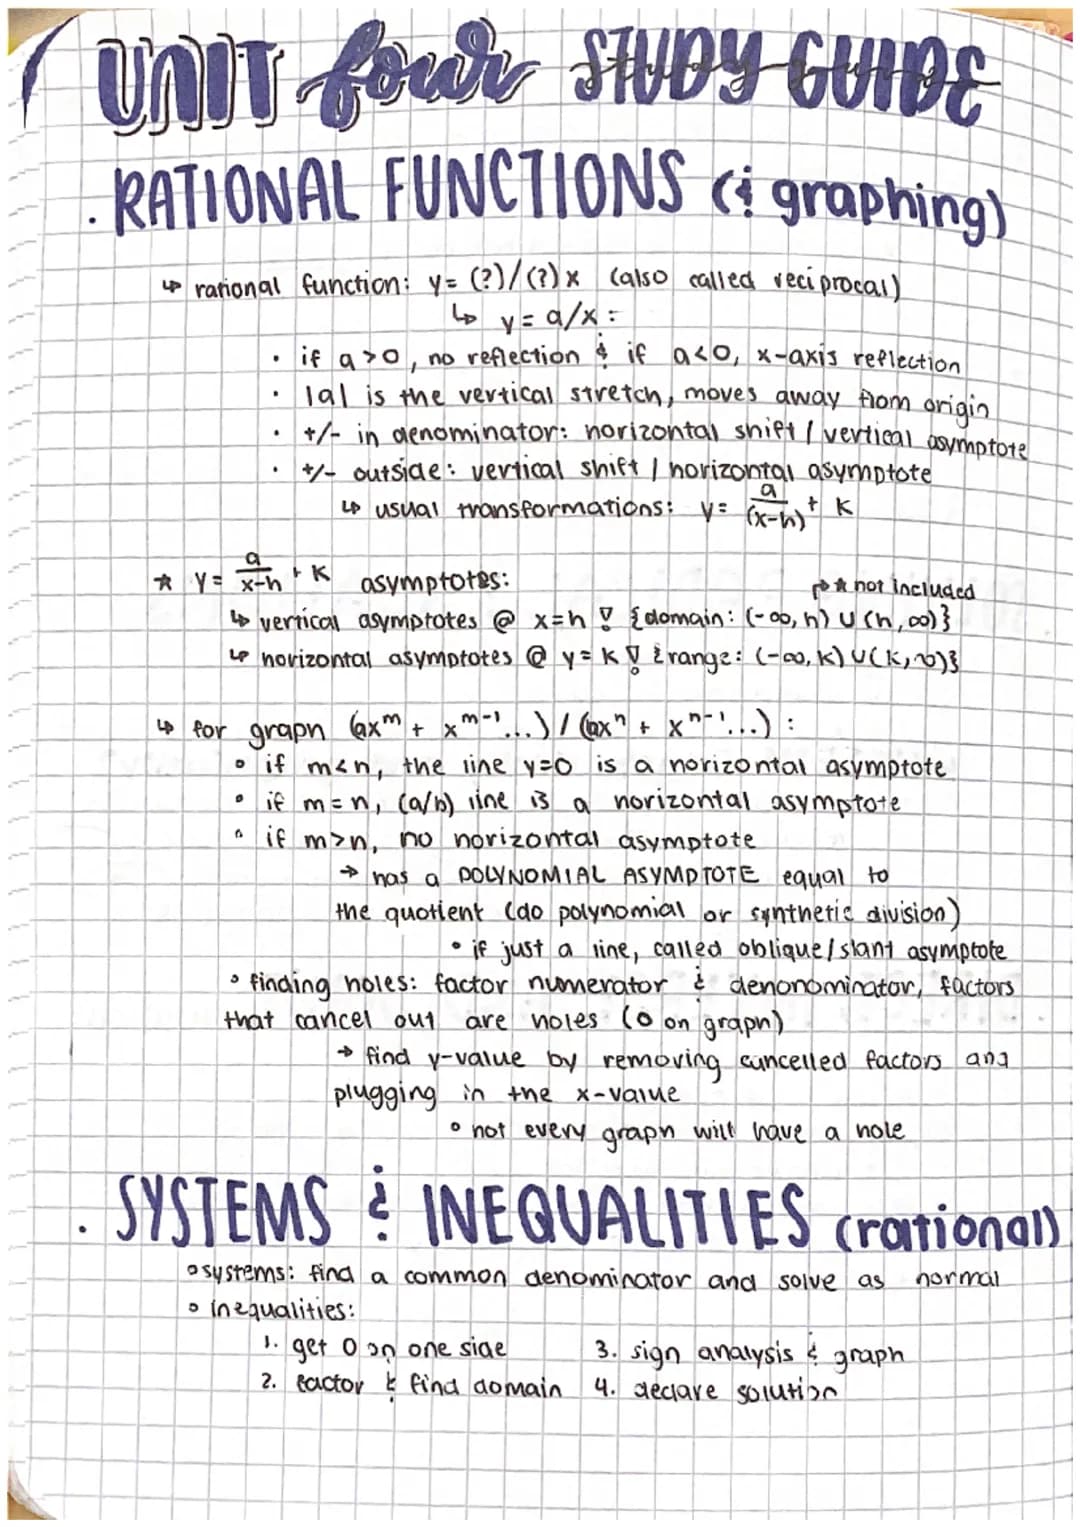 UNIT four STUDY GUIDE
. RATIONAL FUNCTIONS (& graphing)
↳ rational function: y= (?)/(?)x (also called reciprocal)
↳ y= a/x:
• if a>0, no reflection & if a<0, x-axis reflection
• |a| is the vertical stretch, moves away from origin
• +/- in denominator: horizontal shift / vertical asymptote
• +/- outside: vertical shift / horizontal asymptote
↳ usual transformations: y= a/(x-h) + K
★ y= a/x-h + K asymptotes:
↱★ not included
↳ vertical asymptotes @ x=h ▽ {domain: (-∞,h) U (h,∞)}
↳ horizontal asymptotes @ y=K ▽ {range: (-∞,K) U (K,∞)}
↳ for graph (axᵐ + xᵐ⁻¹...) / (bxⁿ + xⁿ⁻¹...) :
• if m<n, the line y=0 is a horizontal asymptote
• if m=n, (a/b) line is a horizontal asymptote
• if m>n, no horizontal asymptote
→ has a POLYNOMIAL ASYMPTOTE equal to
the quotient (do polynomial or synthetic division)
• if just a line, called oblique/slant asymptote
• finding holes: factor numerator & denonominator, factors
that cancel out are holes (o on graph)
→ find y-value by removing cancelled factors and
plugging in the x-value
• not every graph will have a hole
. SYSTEMS & INEQUALITIES (rational)
• systems: find a common denominator and solve as normal
• inequalities:
1. get 0 on one side 3. sign analysis & graph
2. factor & find domain 4. declare solution